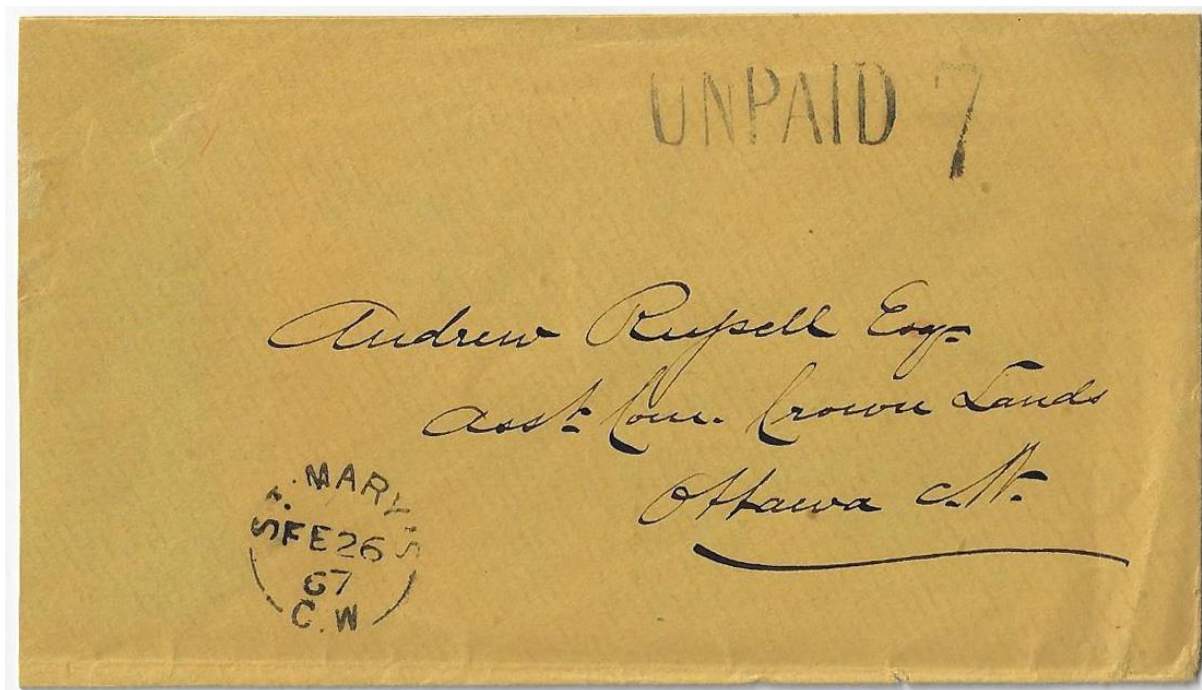 UNPAID 7
Andrew Russell Esq.
Asst. Com. Crown Lands
Ottawa C.W.
ST. MARY'S
FE 26
67
C.W